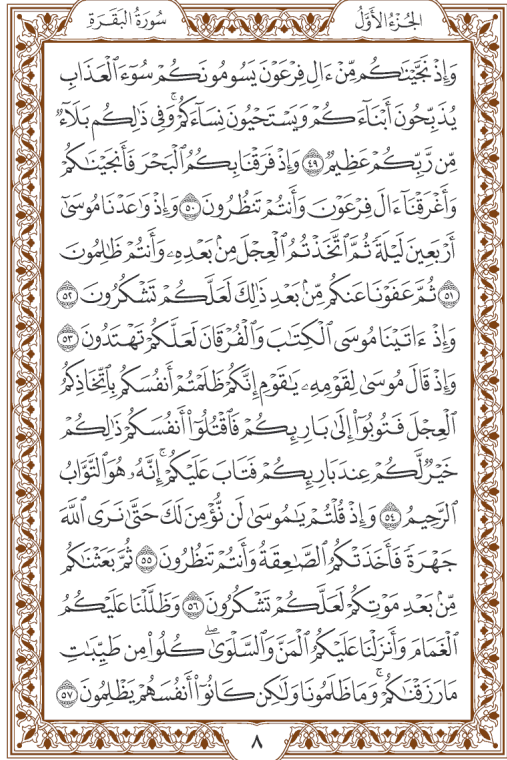 الجُزْءُ الأَوَّلُ سُورَةُ البَقَرَةِ
وَإِذْ نَجَّيْنَٰكُم مِّنْ ءَالِ فِرْعَوْنَ يَسُومُونَكُمْ سُوٓءَ ٱلْعَذَابِ
يُذَبِّحُونَ أَبْنَآءَكُمْ وَيَسْتَحْيُونَ نِسَآءَكُمْۚ وَفِى ذَٰلِكُم بَلَآءٌ
مِّن رَّبِّكُمْ عَظِيمٌ ٤٩ وَإِذْ فَرَقْنَا بِكُمُ ٱلْبَحْرَ فَأَنجَيْنَٰكُمْ
وَأَغْرَقْنَآ ءَالَ فِرْعَوْنَ وَأَنتُمْ تَنظُرُونَ ٥٠ وَإِذْ وَٰعَدْنَا مُوسَىٰٓ
أَرْبَعِينَ لَيْلَةً ثُمَّ ٱتَّخَذْتُمُ ٱلْعِجْلَ مِنۢ بَعْدِهِۦ وَأَنتُمْ ظَٰلِمُونَ
٥١ ثُمَّ عَفَوْنَا عَنكُم مِّنۢ بَعْدِ ذَٰلِكَ لَعَلَّكُمْ تَشْكُرُونَ ٥٢
وَإِذْ ءَاتَيْنَا مُوسَى ٱلْكِتَٰبَ وَٱلْفُرْقَانَ لَعَلَّكُمْ تَهْتَدُونَ ٥٣
وَإِذْ قَالَ مُوسَىٰ لِقَوْمِهِۦ يَٰقَوْمِ إِنَّكُمْ ظَلَمْتُمْ أَنفُسَكُم بِٱتِّخَاذِكُمُ
ٱلْعِجْلَ فَتُوبُوٓا۟ إِلَىٰ بَارِئِكُمْ فَٱقْتُلُوٓا۟ أَنفُسَكُمْ ذَٰلِكُمْ
خَيْرٌ لَّكُمْ عِندَ بَارِئِكُمْ فَتَابَ عَلَيْكُمْۚ إِنَّهُۥ هُوَ ٱلتَّوَّابُ
ٱلرَّحِيمُ ٥٤ وَإِذْ قُلْتُمْ يَٰمُوسَىٰ لَن نُّؤْمِنَ لَكَ حَتَّىٰ نَرَى ٱللَّهَ
جَهْرَةً فَأَخَذَتْكُمُ ٱلصَّٰعِقَةُ وَأَنتُمْ تَنظُرُونَ ٥٥ ثُمَّ بَعَثْنَٰكُم
مِّنۢ بَعْدِ مَوْتِكُمْ لَعَلَّكُمْ تَشْكُرُونَ ٥٦ وَظَلَّلْنَا عَلَيْكُمُ
ٱلْغَمَامَ وَأَنزَلْنَا عَلَيْكُمُ ٱلْمَنَّ وَٱلسَّلْوَىٰۖ كُلُوا۟ مِن طَيِّبَٰتِ
مَا رَزَقْنَٰكُمْۚ وَمَا ظَلَمُونَا وَلَٰكِن كَانُوٓا۟ أَنفُسَهُمْ يَظْلِمُونَ ٥٧
٨